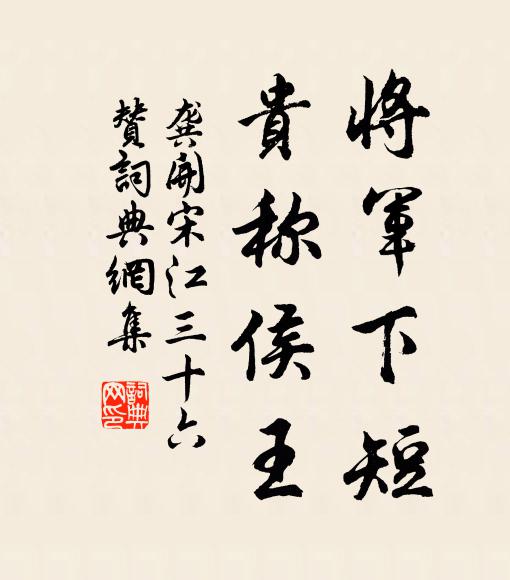 將軍下短
貴称侯王
龔開宋江三十六
贊詞典網集
詞典
网印